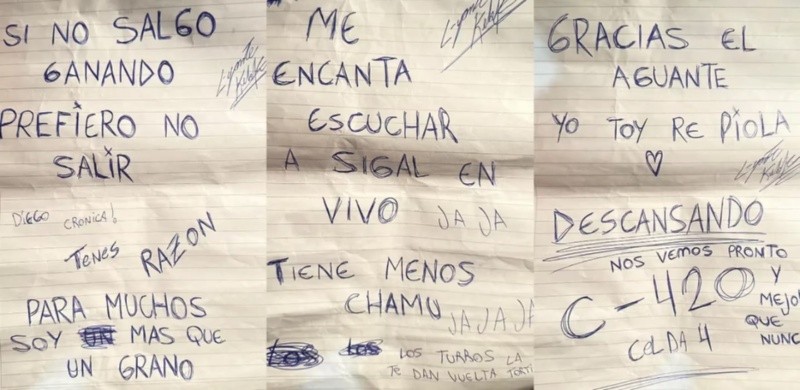 SI NO SALGO
GANANDO
PREFIERO NO
SALIR
DIEGO CRONICA!
TENES RAZON
PARA MUCHOS
SOY MAS QUE
UN GRANO
ME
ENCANTA
ESCUCHAR
A SIGAL EN
VIVO JA JA
TIENE MENOS
CHAMU JA JA JA
LOS LOS LOS TURROS LA
TE DAN VUELTA
GRACIAS EL
AGUANTE
YO TOY RE PIOLA
DESCANSANDO
NOS VEMOS PRONTO
C-420 Y
MEJOR
QUE
NUNC
CELDA 4